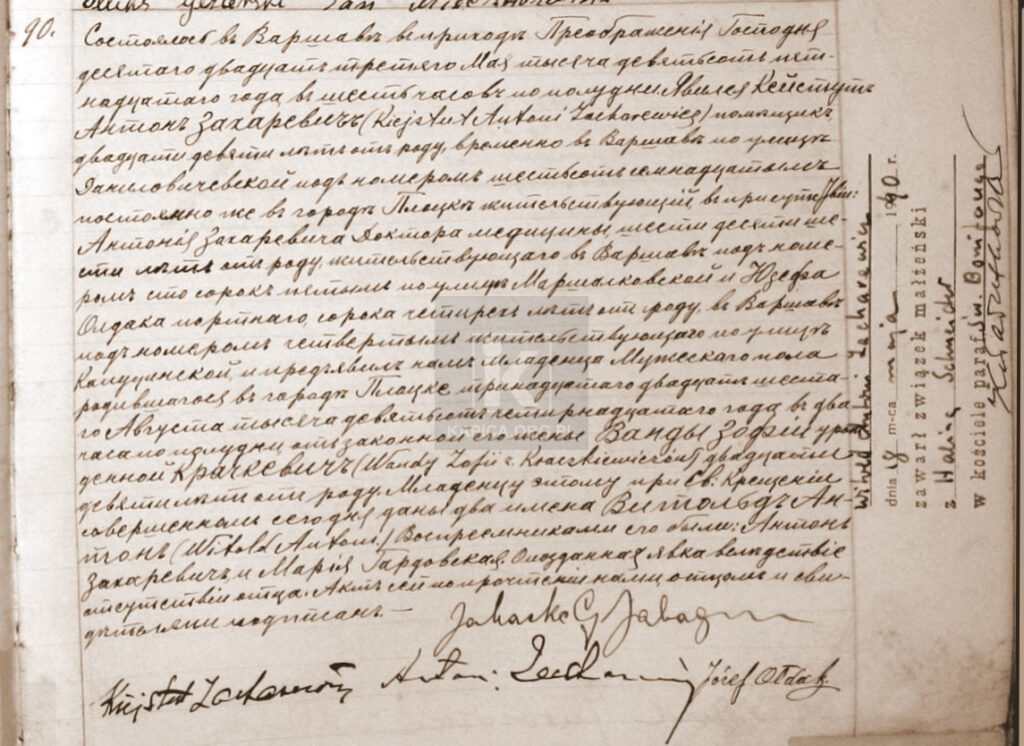 90.
Состоялось въ Варшавѣ въ приходѣ Преображенія Господня
десятаго двадцать третьяго Мая тысяча девятьсотъ пят-
надцатаго года въ шесть часовъ по полудни. Явился Кейстутъ
Антонъ Захаревичъ (Kiejstut Antoni Zacharewicz) помѣщикъ,
двадцати девяти лѣтъ отъ роду, временно въ Варшавѣ по улицѣ
Даниловичевской подъ номеромъ шестьсотъ семнадцатымъ
постоянно же въ городѣ Плоцкѣ жительствующій, въ присутствіи:
Антонія Захаревича Доктора медицины, шести десяти ше-
сти лѣтъ отъ роду, жительствующаго въ Варшавѣ подъ номе-
ромъ сто сорокъ пятымъ по улицѣ Маршалковской и Юзефа
Олдака портнаго, сорока четырехъ лѣтъ отъ роду, въ Варшавѣ
подъ номеромъ четвертымъ жительствующаго по улицѣ
Капуцинской, и предъявилъ намъ Младенца Мужескаго пола
родившагося въ городѣ Плоцке тринадцатаго двадцать шеста-
го Августа тысяча девятьсотъ четырнадцатаго года въ два
часа по полудни отъ законной его жены Ванды Зофіи урож-
денной Крачкевичъ (Wandy Zofii z Kraczkiewiczów) двадцати
девяти лѣтъ отъ роду. Младенцу этому при Св: Крещеніи
совершенномъ сегодня даны два имена Витольдъ Ан-
тонъ (Witold Antoni) Воспреемниками его были: Антонъ
Захаревичъ и Марія Гардовская. Опозданная явка вслѣдствіе
отсутствія отца. Актъ сей по прочтеніи нами, отцомъ и сви-
дѣтелями подписанъ. —
Kiejstut Zacharewicz
Antoni Zacharewicz
Józef Ołdak
Witold Antoni Zacharewicz
dnia 18 m-ca maja 1940 r.
zawarł związek małżeński
z Halina Schneider
w kościele parafjn. Bonifacego
KAPICA.ORG.PL